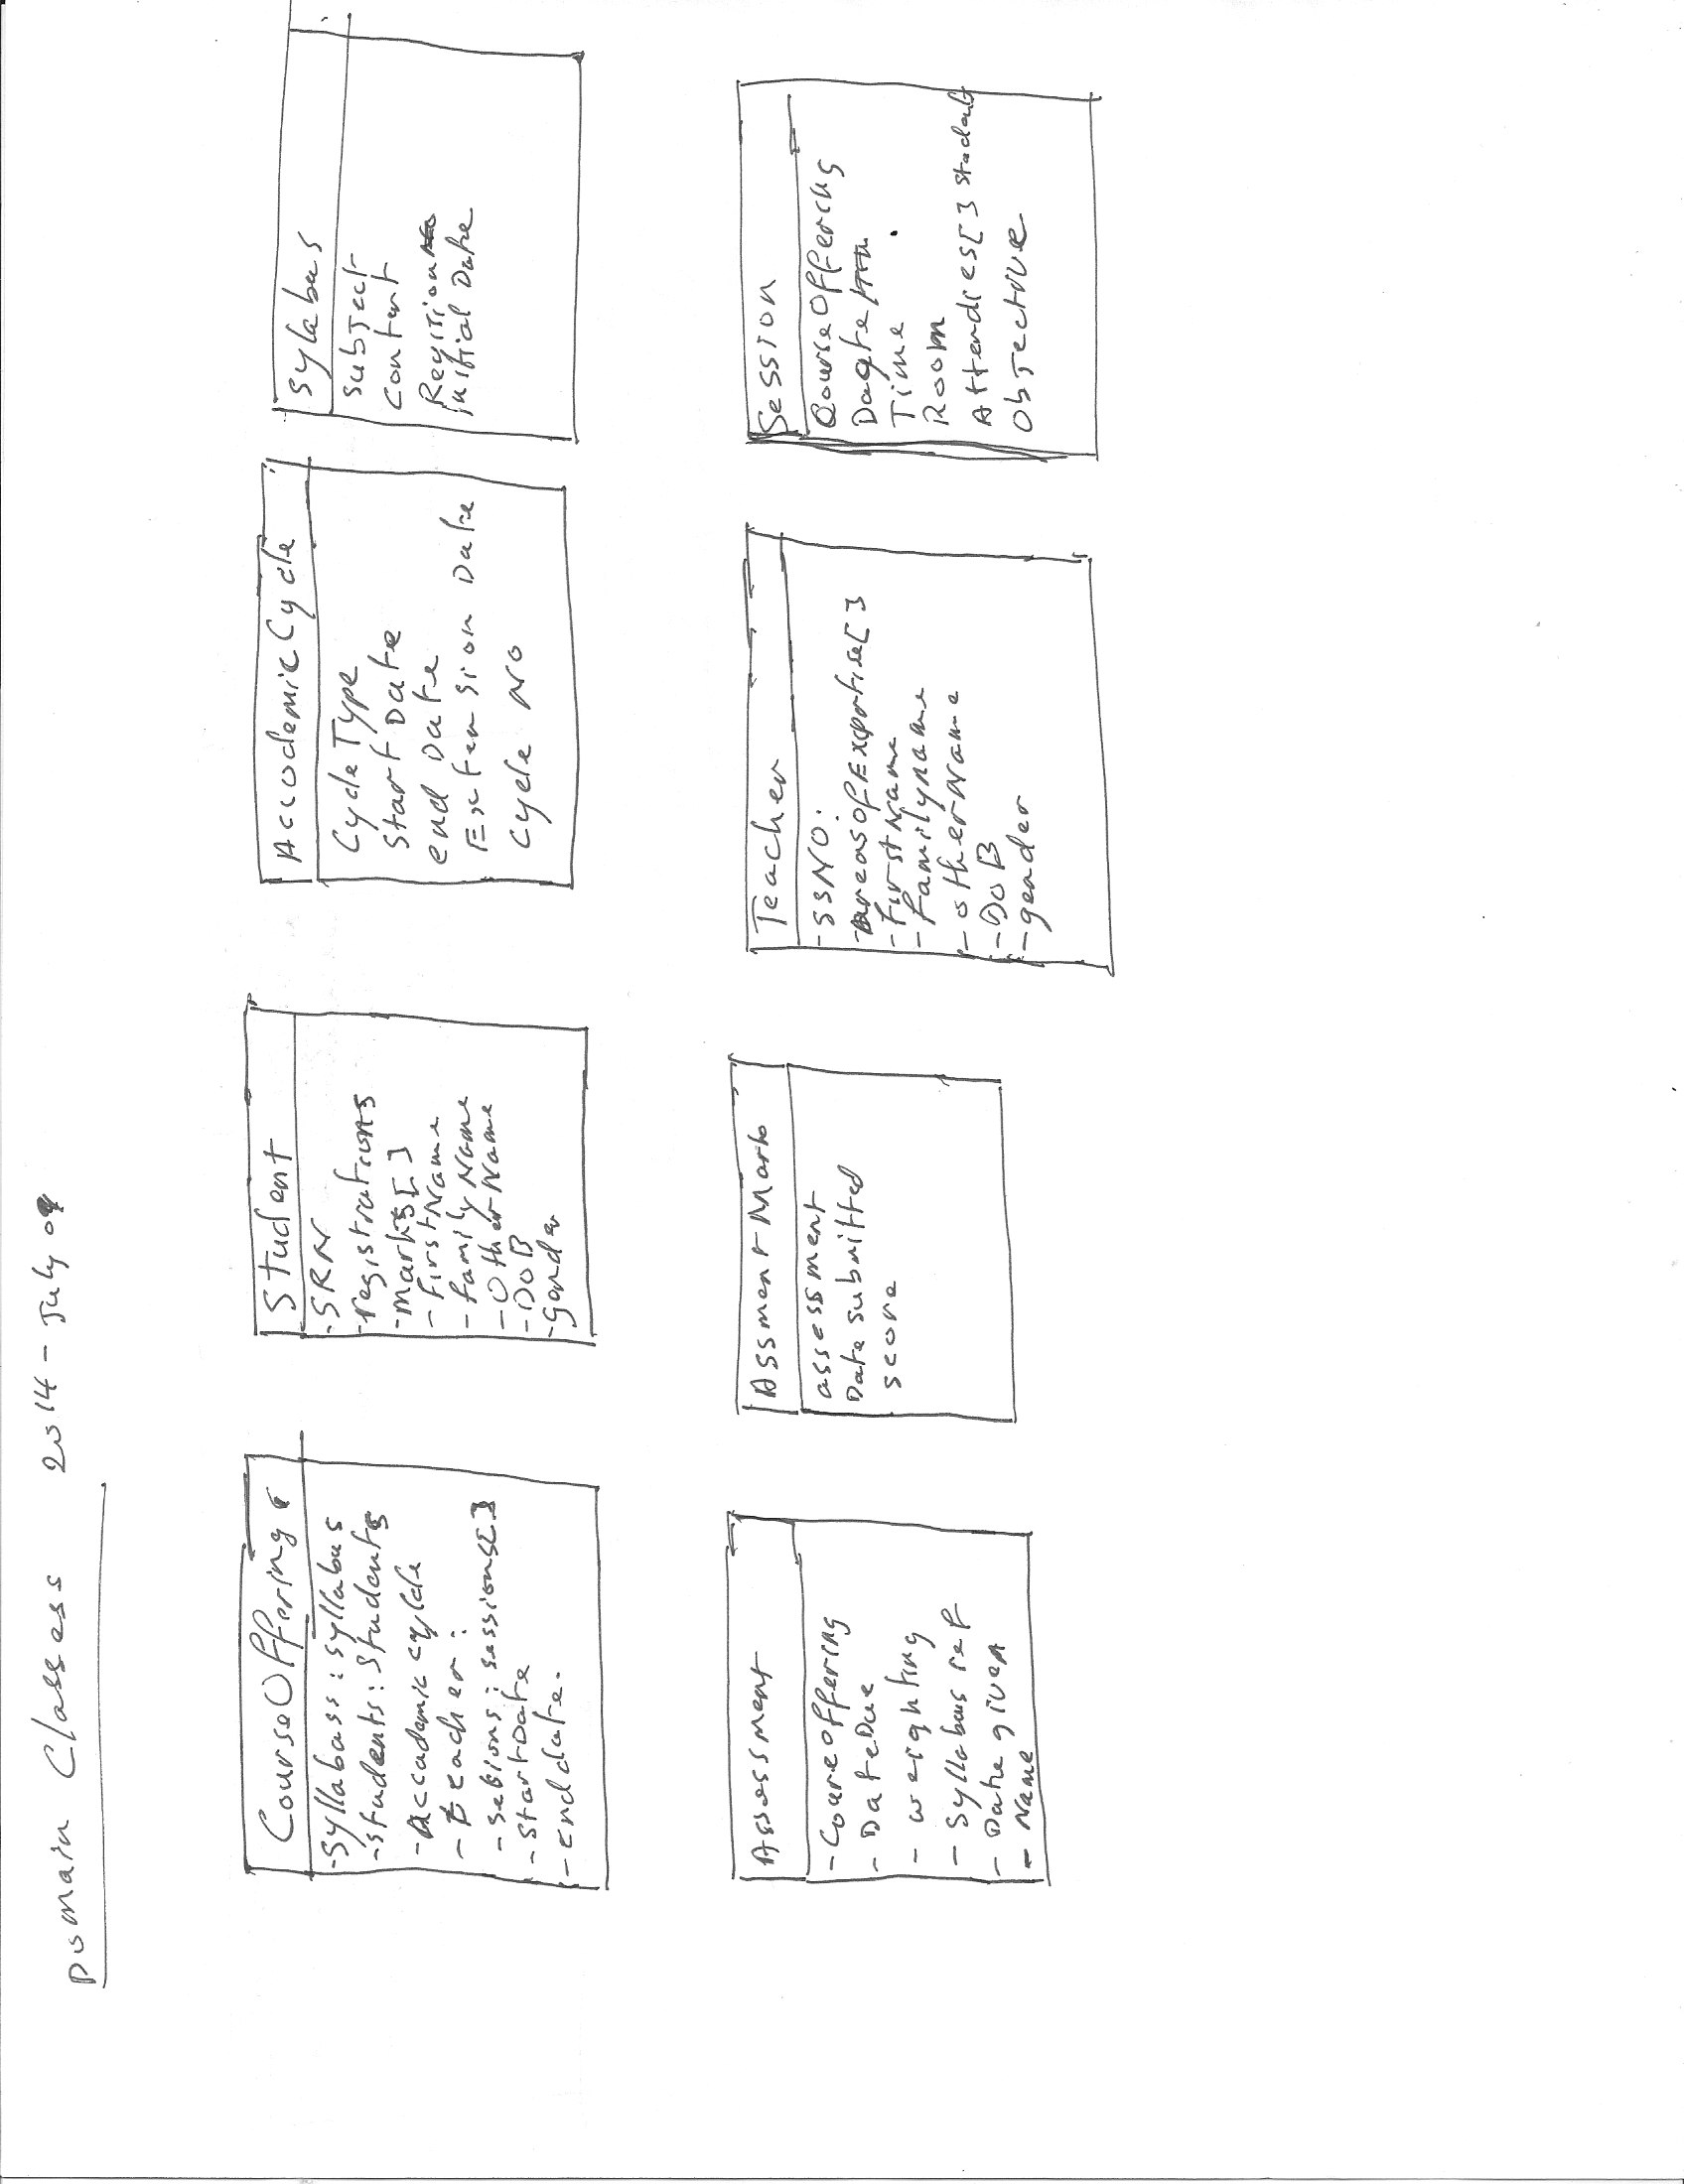 Domain Classes 2014 - July 09
CourseOffering
- Syllabass : syllabus
- students : students
- Accademic cycle
- Teacher :
- sebions : sessions[]
- Start Date
- end date.
Student
- SRN
- registrations
- marks[]
- First Name
- family Name
- Other Name
- DOB
- Gender
AccodemicCycle
Cycle Type
Start Date
end Date
Extension Date
Cycle NO
Sylabus
Subject
Content
Revition
Initial Date
Assessment
- Coureoffering
- DateDue
- weighting
- Syllabus ref
- Date given
- Name
Assment Marks
assessment
Date submitted
score
Teacher
- SSNO:
- AreasOfExpertise[]
- First Name
- Family name
- other Name
- DOB
- gender
Session
CourseOffering
Date
Time
Room
Attendies[] student
Objective